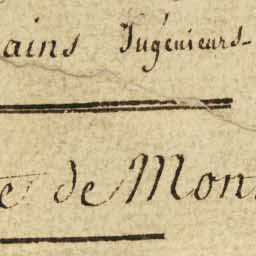 ains Ingénieurs-
e de Mon